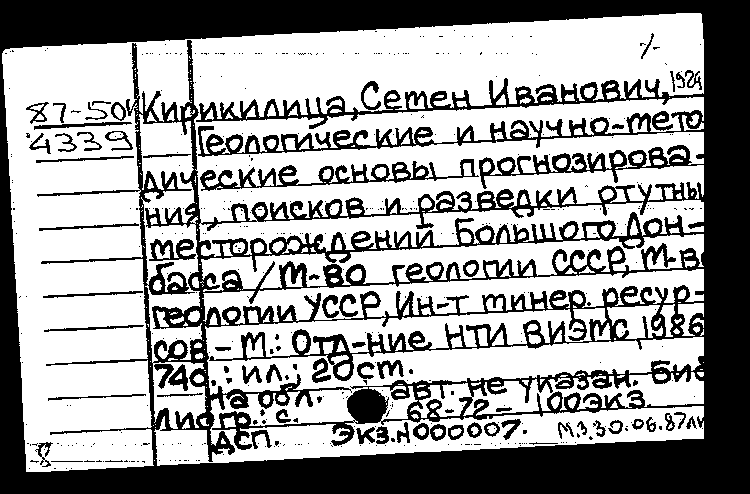 87-50к Кирикилица, Семен Иванович, 1924
4339 Геологические и научно-мето
дические основы прогнозирова-
ния, поисков и разведки ртутны
месторождений Большого Дон-
басса / М-во геологии СССР, М-во
геологии УССР, Ин-т минер. ресур-
сов. - М.: Отд-ние НТИ ВИЭМС, 1986
74с. : ил.; 20см.
На обл. авт. не указан. Биб
лиогр.: с. 68-72 - 100экз.
ДСП. Экз.N000007. М.З.30.06.87
8